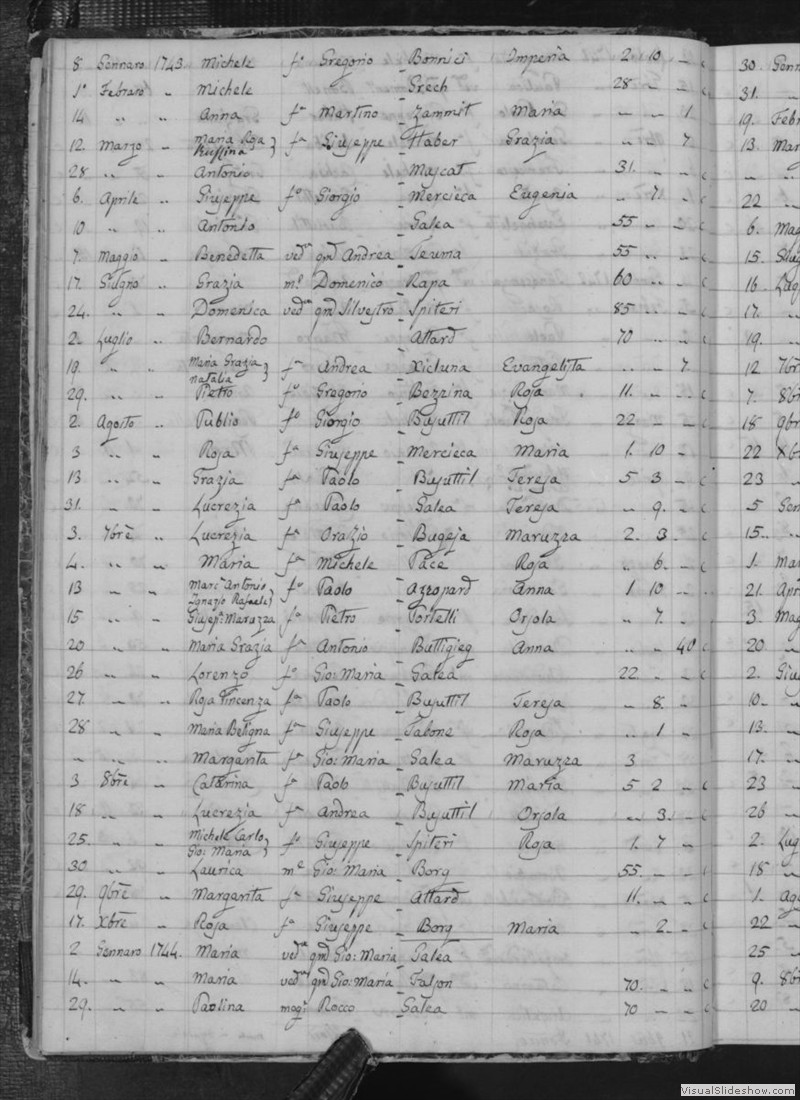 8 Gennaro 1743. Michele fº Gregorio Bonnici Imperia 2 10 „ c
1º Febraro „ Michele Grech 28 „ „ c
14 „ „ Anna fª Martino Zammit Maria „ „ 1.
12. Marzo „ Maria Roja Ruffina } fª Giuseppe Haber Grazia „ „ 7.
28 „ „ Antonio Mascat 31. „ „ c
6. Aprile „ Giuseppe fº Giorgio Mercieca Eugenia „ 7. „ c
10 „ „ Antonio Galea 55 „ „ c
7. Maggio „ Benedetta vedª qm Andrea Teuma 55 „ „ c
17. Giugno „ Grazia mº Domenico Rapa 60 „ „ c
24. „ „ Domenica vedª qm Silvestro Spiteri 85 „ „ c
2. Luglio „ Bernardo Attard 70 „ „ c
19. „ „ Maria Grazia Natalia } fª Andrea Xicluna Evangelista „ „ 7.
29. „ „ Pietro fº Gregorio Bezzina Roja 11. „ „ c
2. Agosto „ Publio fº Giorgio Bujuttil Roja 22 „ „ c
3 „ „ Roja fª Giuseppe Mercieca Maria 1. 10 „
13 „ „ Grazia fª Paolo Bujuttil Tereja 5 3 „ c
31. „ „ Lucrezia fª Paolo Galea Tereja „ 9. „ c
3. 7bre „ Lucrezia fª Orazio Bugeja Maruzza 2. 3. „ c
4. „ „ Maria fª Michele Pace Roja „ 6. „ c
13 „ „ Marc'Antonio Ignazio Rafaele } fº Paolo Azzopard Anna 1 10 „
15 „ „ Giusepª Maruzza fª Pietro Portelli Orsola „ 7. „
20 „ „ Maria Grazia fª Antonio Buttigieg Anna „ „ 40 c
26 „ „ Lorenzo fº Gio: Maria Galea 22 „ „ c
27. „ „ Roja Vincenza fª Paolo Bujuttil Tereja „ 8. „
28 „ „ Maria Beligna fª Giuseppe Tabone Roja „ 1 „
„ „ „ Margarita fª Gio: Maria Galea Maruzza 3
3 8bre „ Catarina fª Paolo Bujuttil Maria 5 2 „ c
18 „ „ Lucrezia fª Andrea Bujuttil Orsola „ 3. „ c
25. „ „ Michele Carlo Gio: Maria } fº Giuseppe Spiteri Roja 1. 7 „
30 „ „ Laurica mª Gio: Maria Borg 55. „ „ c
29. 9bre „ Margarita fª Giuseppe Attard 11. „ „ c
17. Xbre „ Roja fª Giuseppe Borg Maria „ 2. „ c
2 Gennaro 1744. Maria vedª qm Gio: Maria Galea
14. „ „ Maria vedª qm Gio: Maria Falson 70. „ „ c
29. „ „ Paolina mogˡ Rocco Galea 70 „ „ c
30. Genn
31. „
19. Febr
13. Mar
„ „
22 „
6. Mag
15. Giug
16. Lug
17. „
19. „
12 7br
7. 8br
18 9br
22 Xbr
23 „
5 Gen
15. „
1. Mar
21. Apr
3. Mag
20 „
2. Giu
10. „
13. „
17. „
23 „
26 „
2. Lug
18 „
1. Ago
22 „
25 „
9. 8br
20 „
VisualSlideshow.com